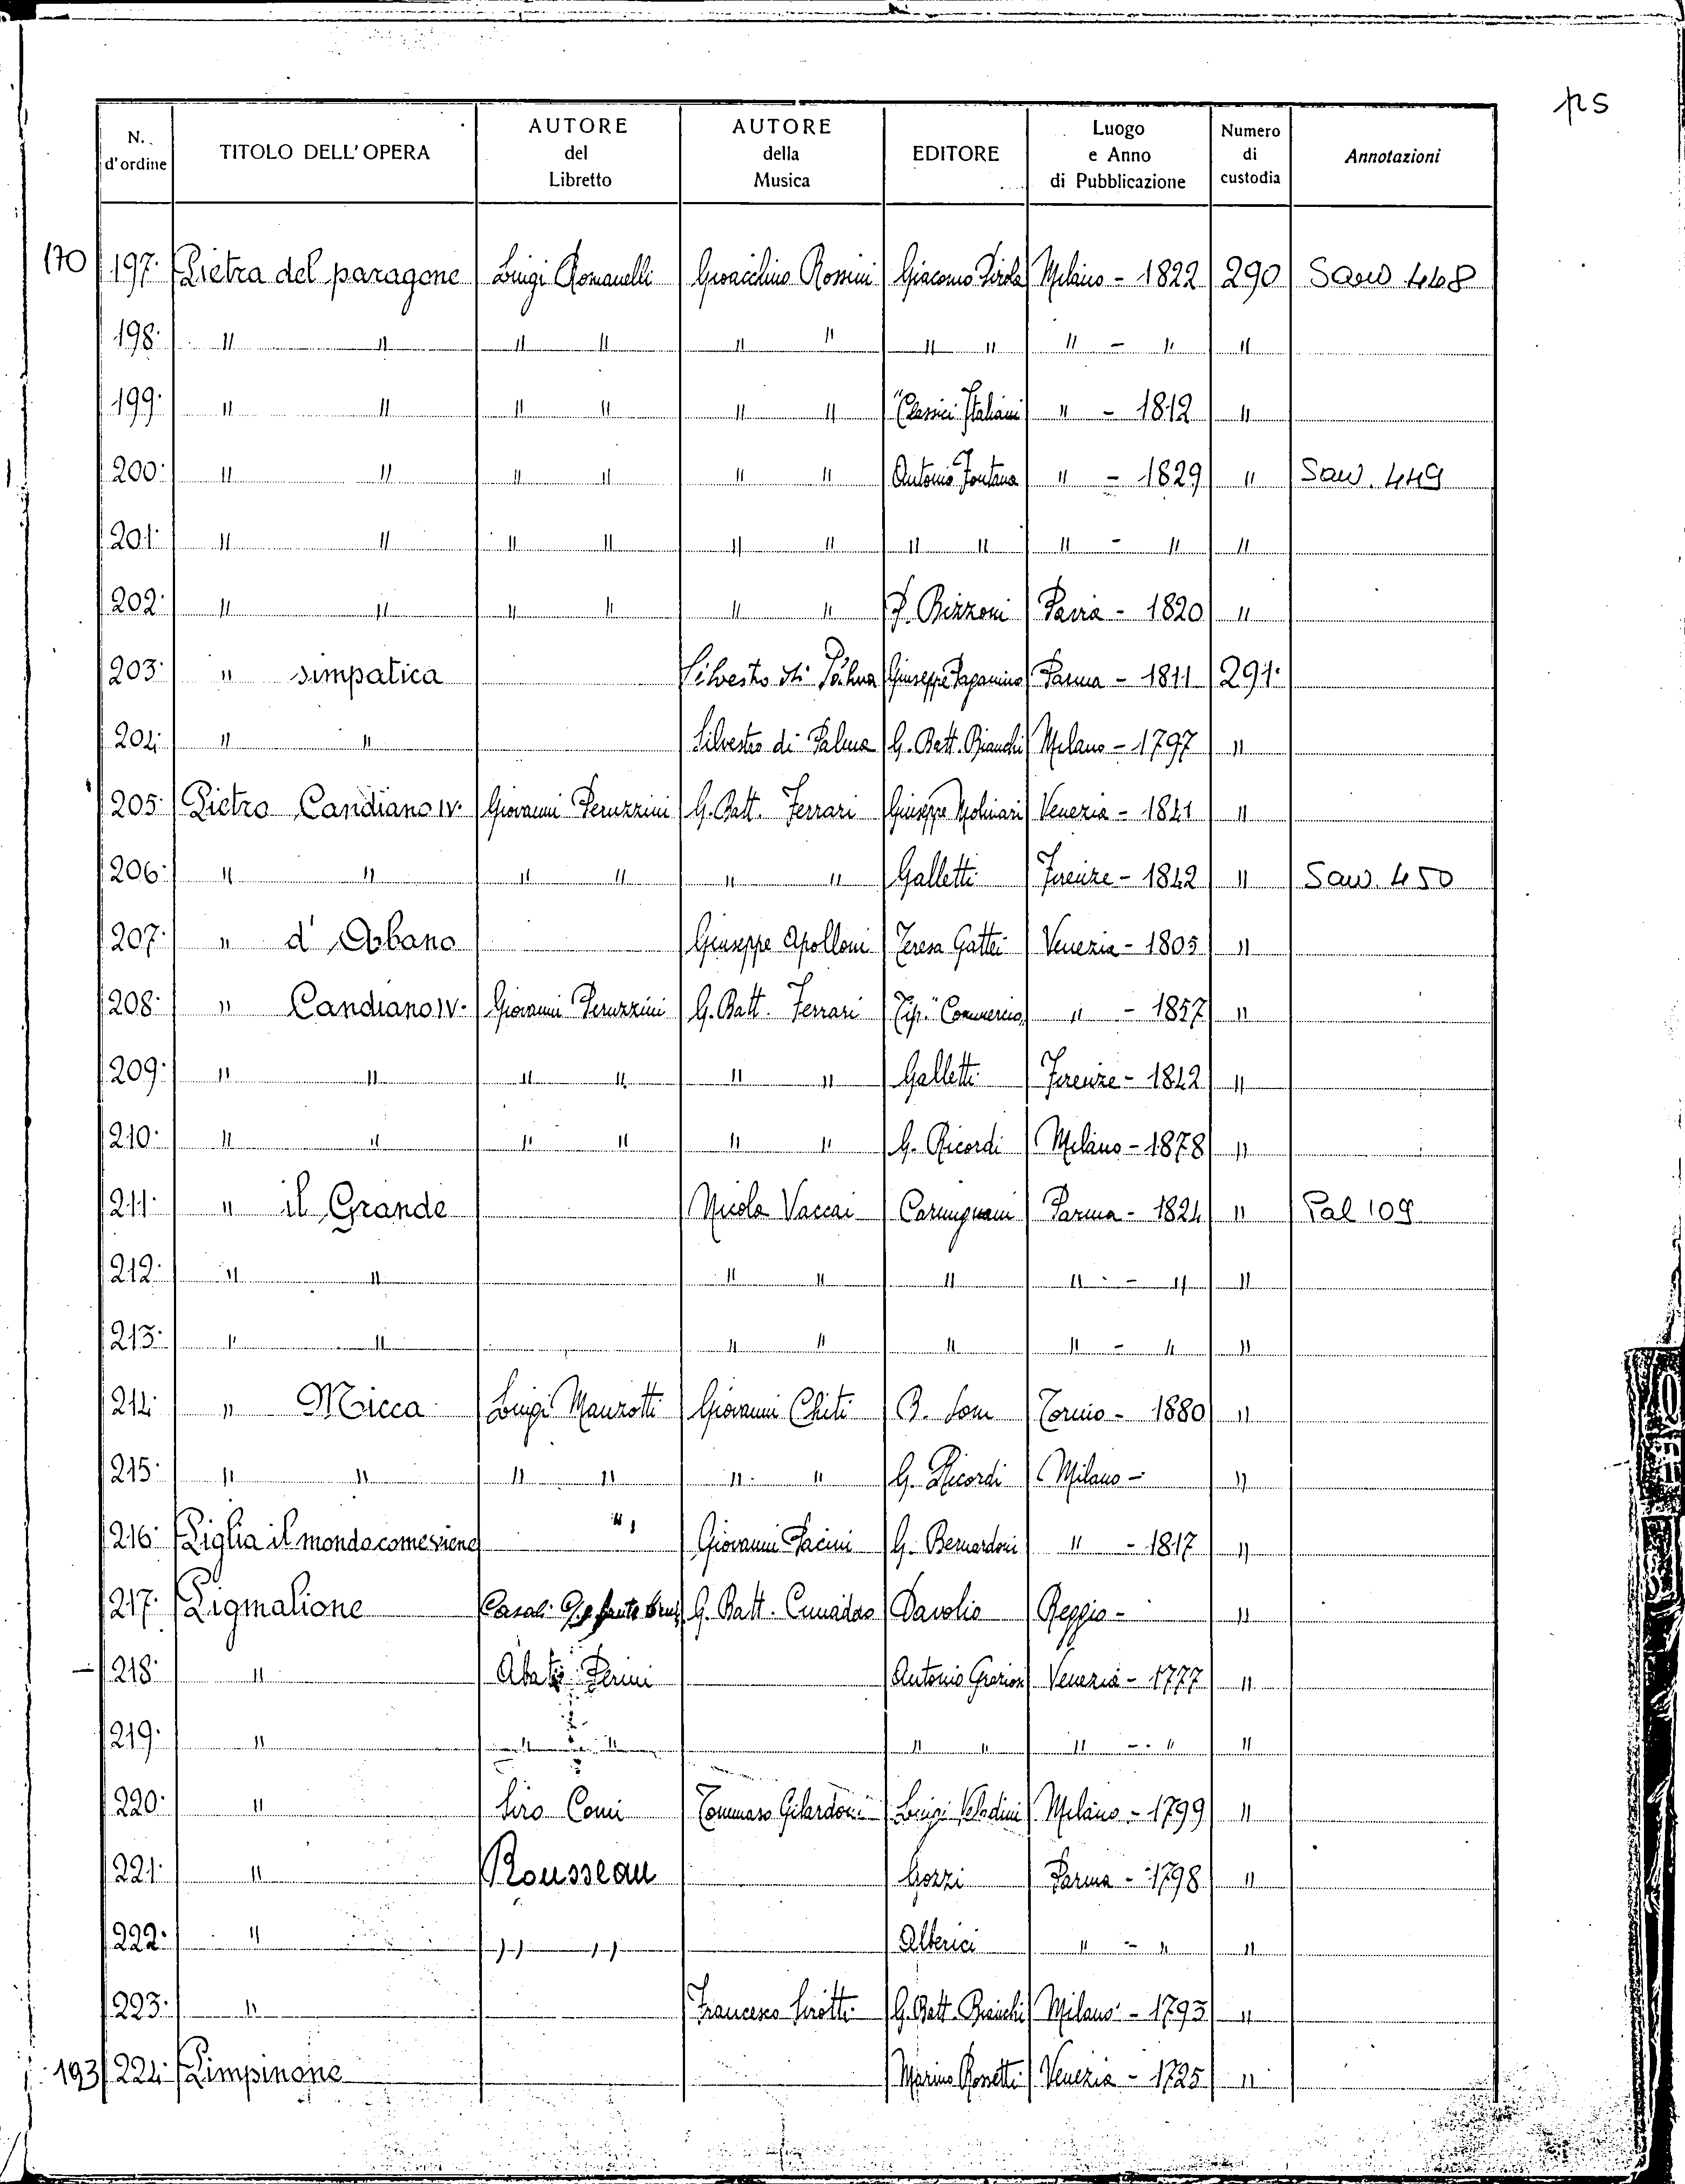 ps
N. d'ordine | TITOLO DELL'OPERA | AUTORE del Libretto | AUTORE della Musica | EDITORE | Luogo e Anno di Pubblicazione | Numero di custodia | Annotazioni
170 197. Pietra del paragone | Luigi Romanelli | Gioacchino Rossini | Giacomo Pirola | Milano - 1822 | 290 | Saw 448
198. " " | " " | " " | " " | " - " | "
199. " " | " " | " " | "Classici Italiani | " - 1812 | "
200. " " | " " | " " | Antonio Fontana | " - 1829 | " | Saw. 449
201. " " | " " | " " | " " | " - " | "
202. " " | " " | " " | P. Bizzoni | Pavia - 1820 | "
203. " simpatica | | Silvestro di Palma | Giuseppe Paganino | Parma - 1811 | 291.
204. " " | | Silvestro di Palma | G. Batt. Bianchi | Milano - 1797 | "
205. Pietro Candiano IV. | Giovanni Peruzzini | G. Batt. Ferrari | Giuseppe Molinari | Venezia - 1841 | "
206. " " | " " | " " | Galletti | Firenze - 1842 | " | Saw. 450
207. " d'Abano | | Giuseppe Apolloni | Teresa Gattei | Venezia - 1805 | "
208. " Candiano IV. | Giovanni Peruzzini | G. Batt. Ferrari | Tip. "Commercio" | " - 1857 | "
209. " " | " " | " " | Galletti | Firenze - 1842 | "
210. " " | " " | " " | G. Ricordi | Milano - 1878 | "
211. " il Grande | | Nicola Vaccai | Carmignani | Parma - 1824 | " | Pal 109
212. " " | | " " | " | " - " | "
213. " " | | " " | " | " - " | "
214. " Micca | Luigi Manzotti | Giovanni Chiti | B. Som | Torino - 1880 | "
215. " " | " " | " " | G. Ricordi | Milano - | "
216. Piglia il mondo come viene | " | Giovanni Pacini | G. Bernardoni | " - 1817 | "
217. Pigmalione | Casali | G. Batt. | Davolio | Reggio - | "
218. " | Abate Perini | | Antonio Graziosi | Venezia - 1777 | "
219. " | " " | | " " | " - " | "
220. " | Siro Comi | Tommaso Gilardoni | Luigi Veladini | Milano - 1799 | "
221. " | Rousseau | | Gozzi | Parma - 1798 | "
222. " | " " | | Alberici | " - " | "
223. " | | Francesco Sirotti | G. Batt. Bianchi | Milano - 1793 | "
193 224. Pimpinone | | | Marino Rossetti | Venezia - 1725 | "